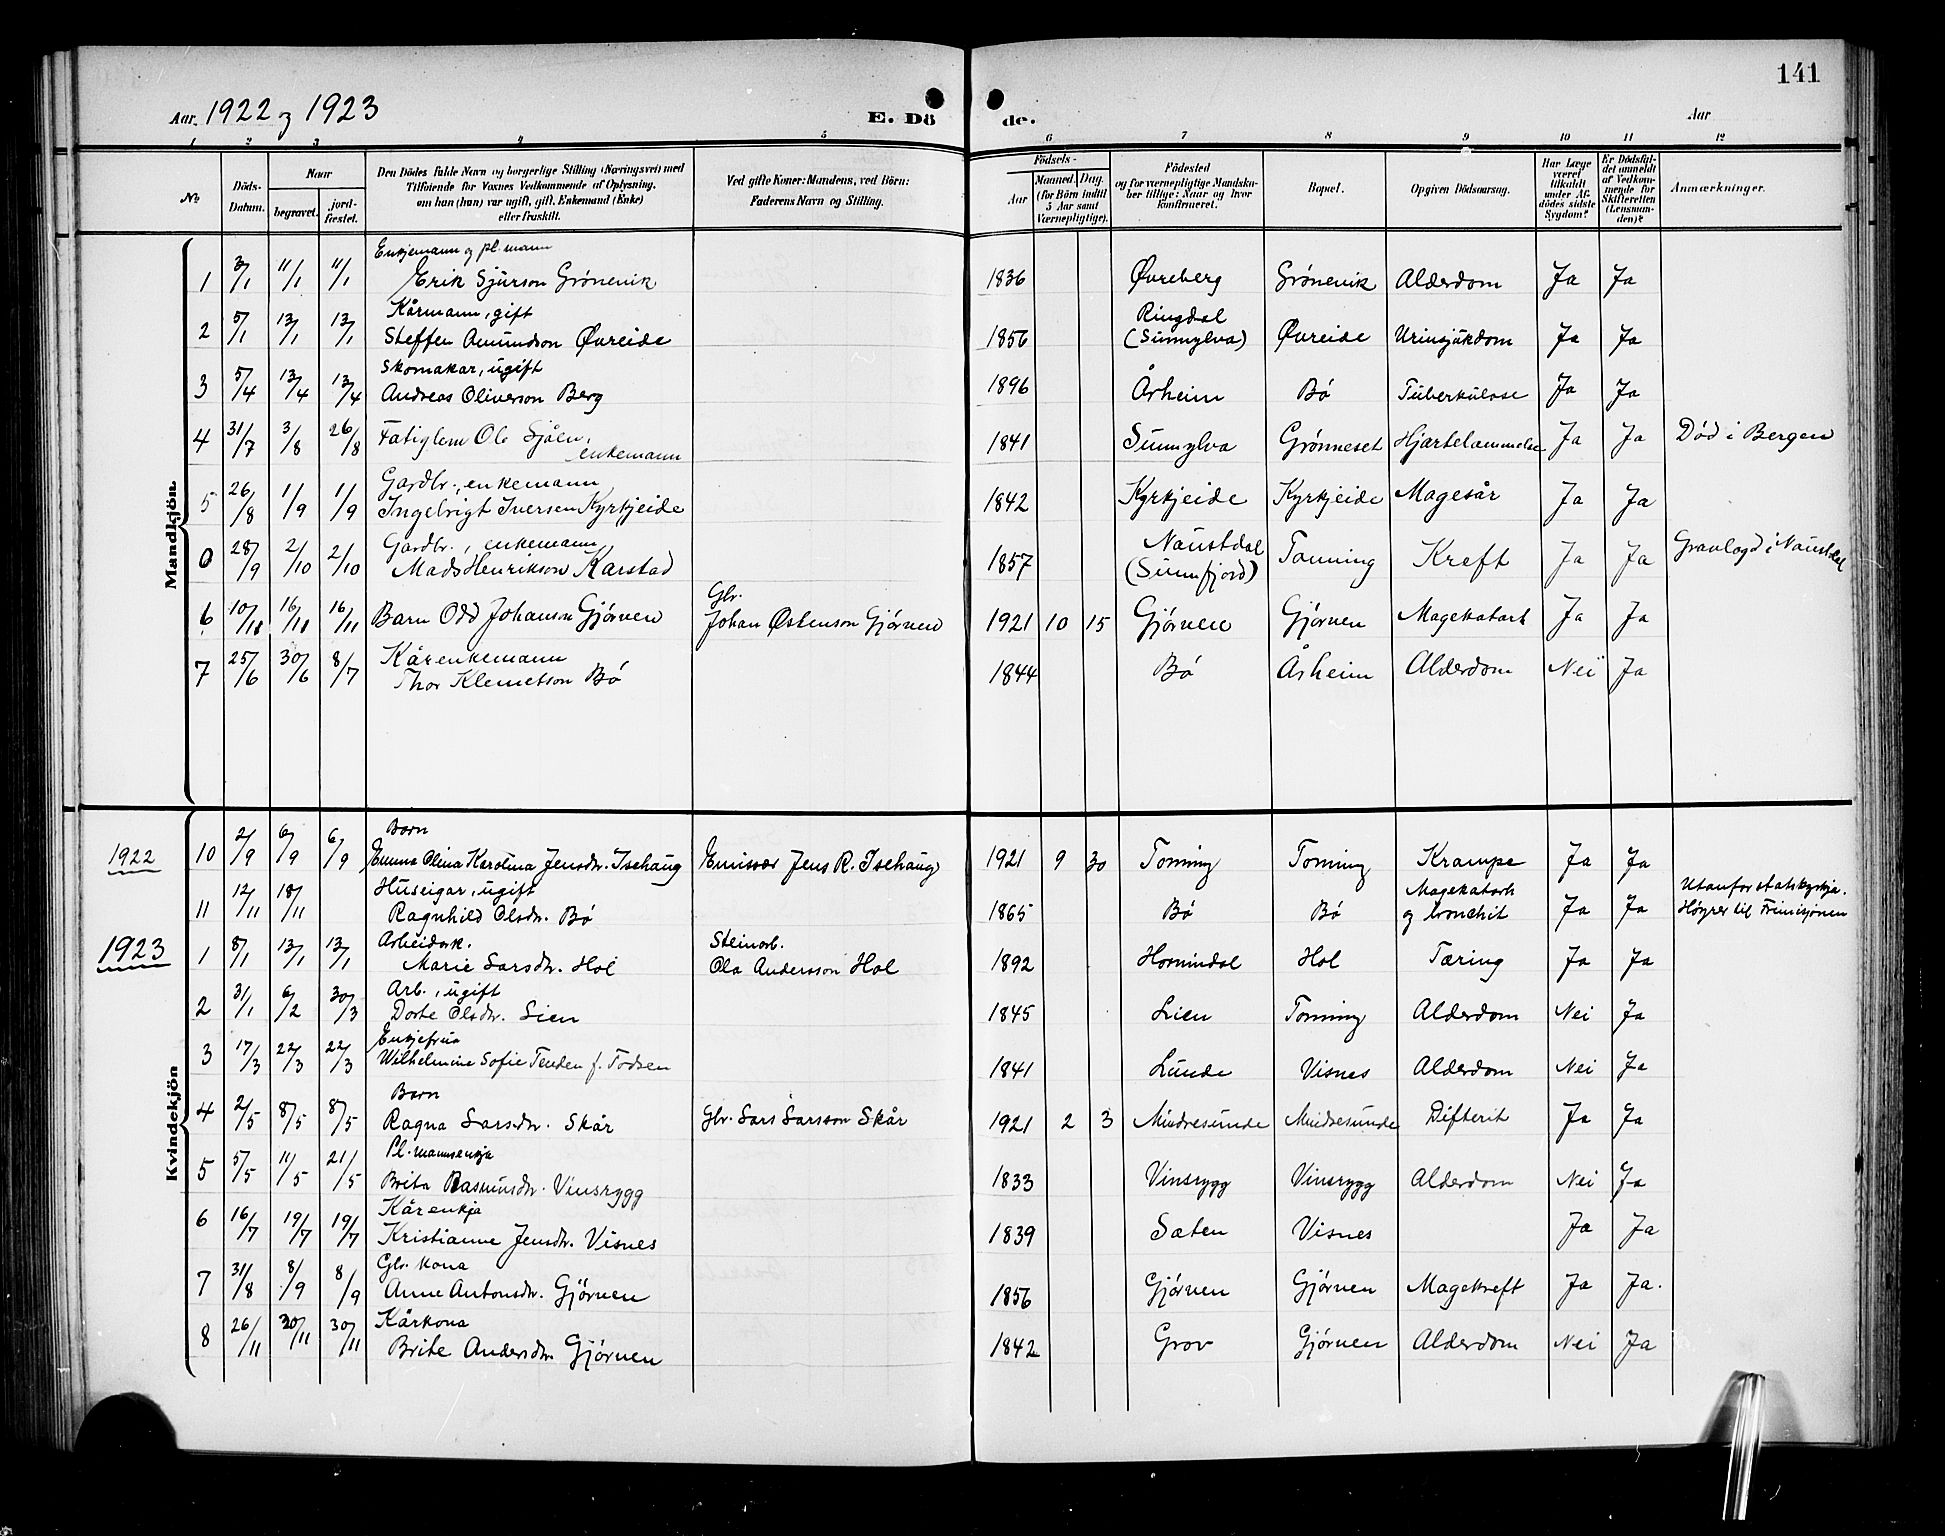 141
Aar. 1922 og 1923
E. Dö
de.
Aar
1 2 3 4 5 6 7 8 9 10 11 12
No.
Döds-Datum.
Naar
begravet.
jord-fæstet.
Den Dödes fulde Navn og borgerlige Stilling (Næringsvei) med
Tilföiende for Voxnes Vedkommende af Oplysning,
om han (hun) var ugift, gift, Enkemand (Enke)
eller fraskilt.
Ved gifte Koner: Mandens, ved Börn:
Faderens Navn og Stilling.
Födsels-
Aar
Maaned. Dag.
(for Börn indtil
5 Aar samt
Værnepligtige).
Födested
og for værnepligtige Mandska-
ber tillige: Naar og hvor
konfirmeret.
Bopæl.
Opgiven Dödsaarsag.
Har Læge
været
tilkaldt
under Af-
dödes sidste
Sygdom?
Er Dödsfal-
det anmeldt
af Vedkom-
mende for
Skifteretten
(Lensman-
den)?
Anmærkninger.
Mandkjön
Enkjemann og pl.mann
1 3/1 11/1 11/1 Erik Sjurson Grønevik 1836 Øvreberg Grønevik Alderdom Ja Ja
Kårmann, gift
2 5/1 13/1 13/1 Steffen Amundson Øvreide 1856 Ringdal (Sunnylva) Øvreide Urinsjukdom Ja Ja
Skomakar, ugift
3 5/4 13/4 13/4 Andreas Oliverson Berg 1896 Årheim Bø Tuberkulose Ja Ja
4 31/7 3/8 26/8 Fatiglem Ole Sjåen, enkemann 1841 Sunnylva Grønneset Hjartelammelse Ja Ja Død i Bergen
Gardbr., enkemann
5 26/8 1/9 1/9 Ingebrigt Iversen Kyrkjeide 1842 Kyrkjeide Kyrkjeide Magesår Ja Ja
Gardbr., enkemann
0 28/9 2/10 2/10 Mads Henrikson Karstad 1857 Naustdal (Sunnfjord) Tonning Kreft Ja Ja Gravlagd i Naustdal
Gbr.
6 10/11 16/11 16/11 Barn Odd Johanson Gjørven Johan Østenson Gjørven 1921 10 15 Gjørven Gjørven Magekatarh Ja Ja
Kårenkemann
7 25/6 30/6 8/7 Thor Klemetson Bø 1844 Bø Årheim Alderdom Nei Ja
Kvindekjön
1922
Barn
10 2/9 6/9 6/9 Emma Olina Karolina Jensdtr. Isehaug Emissær Jens R. Isehaug 1921 9 30 Tonning Tonning Krampe Ja Ja
Huseigar, ugift
11 12/11 18/11 Ragnhild Olsdtr. Bø 1865 Bø Bø Magekatarh og bronchit Ja Ja Utanfor statskyrkja. Høyrer til Frimisjonen
1923
Arbeidark. Steinarb.
1 8/1 13/1 13/1 Marie Larsdtr. Hol Ola Andersson Hol 1892 Hornindal Hol Tæring Ja Ja
Arb., ugift
2 31/1 6/2 30/3 Dorte Olsdtr. Lien 1845 Lien Tonning Alderdom Nei Ja
Enkjefrua
3 17/3 22/3 22/3 Wilhelmine Sofie Tenden f. Todsen 1841 Lunde Visnes Alderdom Nei Ja
Barn
4 2/5 8/5 8/5 Ragna Larsdtr. Skår Gbr. Lars Larsson Skår 1921 2 3 Mindresunde Mindresunde Difterit Ja Ja
Pl.mannsenkja
5 5/5 11/5 21/5 Brita Rasmusdtr. Vinsrygg 1833 Vinsrygg Vinsrygg Alderdom Nei Ja
Kårenkja
6 16/7 19/7 19/7 Kristianne Jensdtr. Visnes 1839 Sæten Visnes Ja Ja
Gbr. kona
7 31/8 8/9 8/9 Anne Antonsdtr. Gjørven 1856 Gjørven Gjørven Magekreft Ja Ja.
Kårkona
8 26/11 30/11 30/11 Brite Andersdtr. Gjørven 1842 Grov Gjørven Alderdom Nei Ja